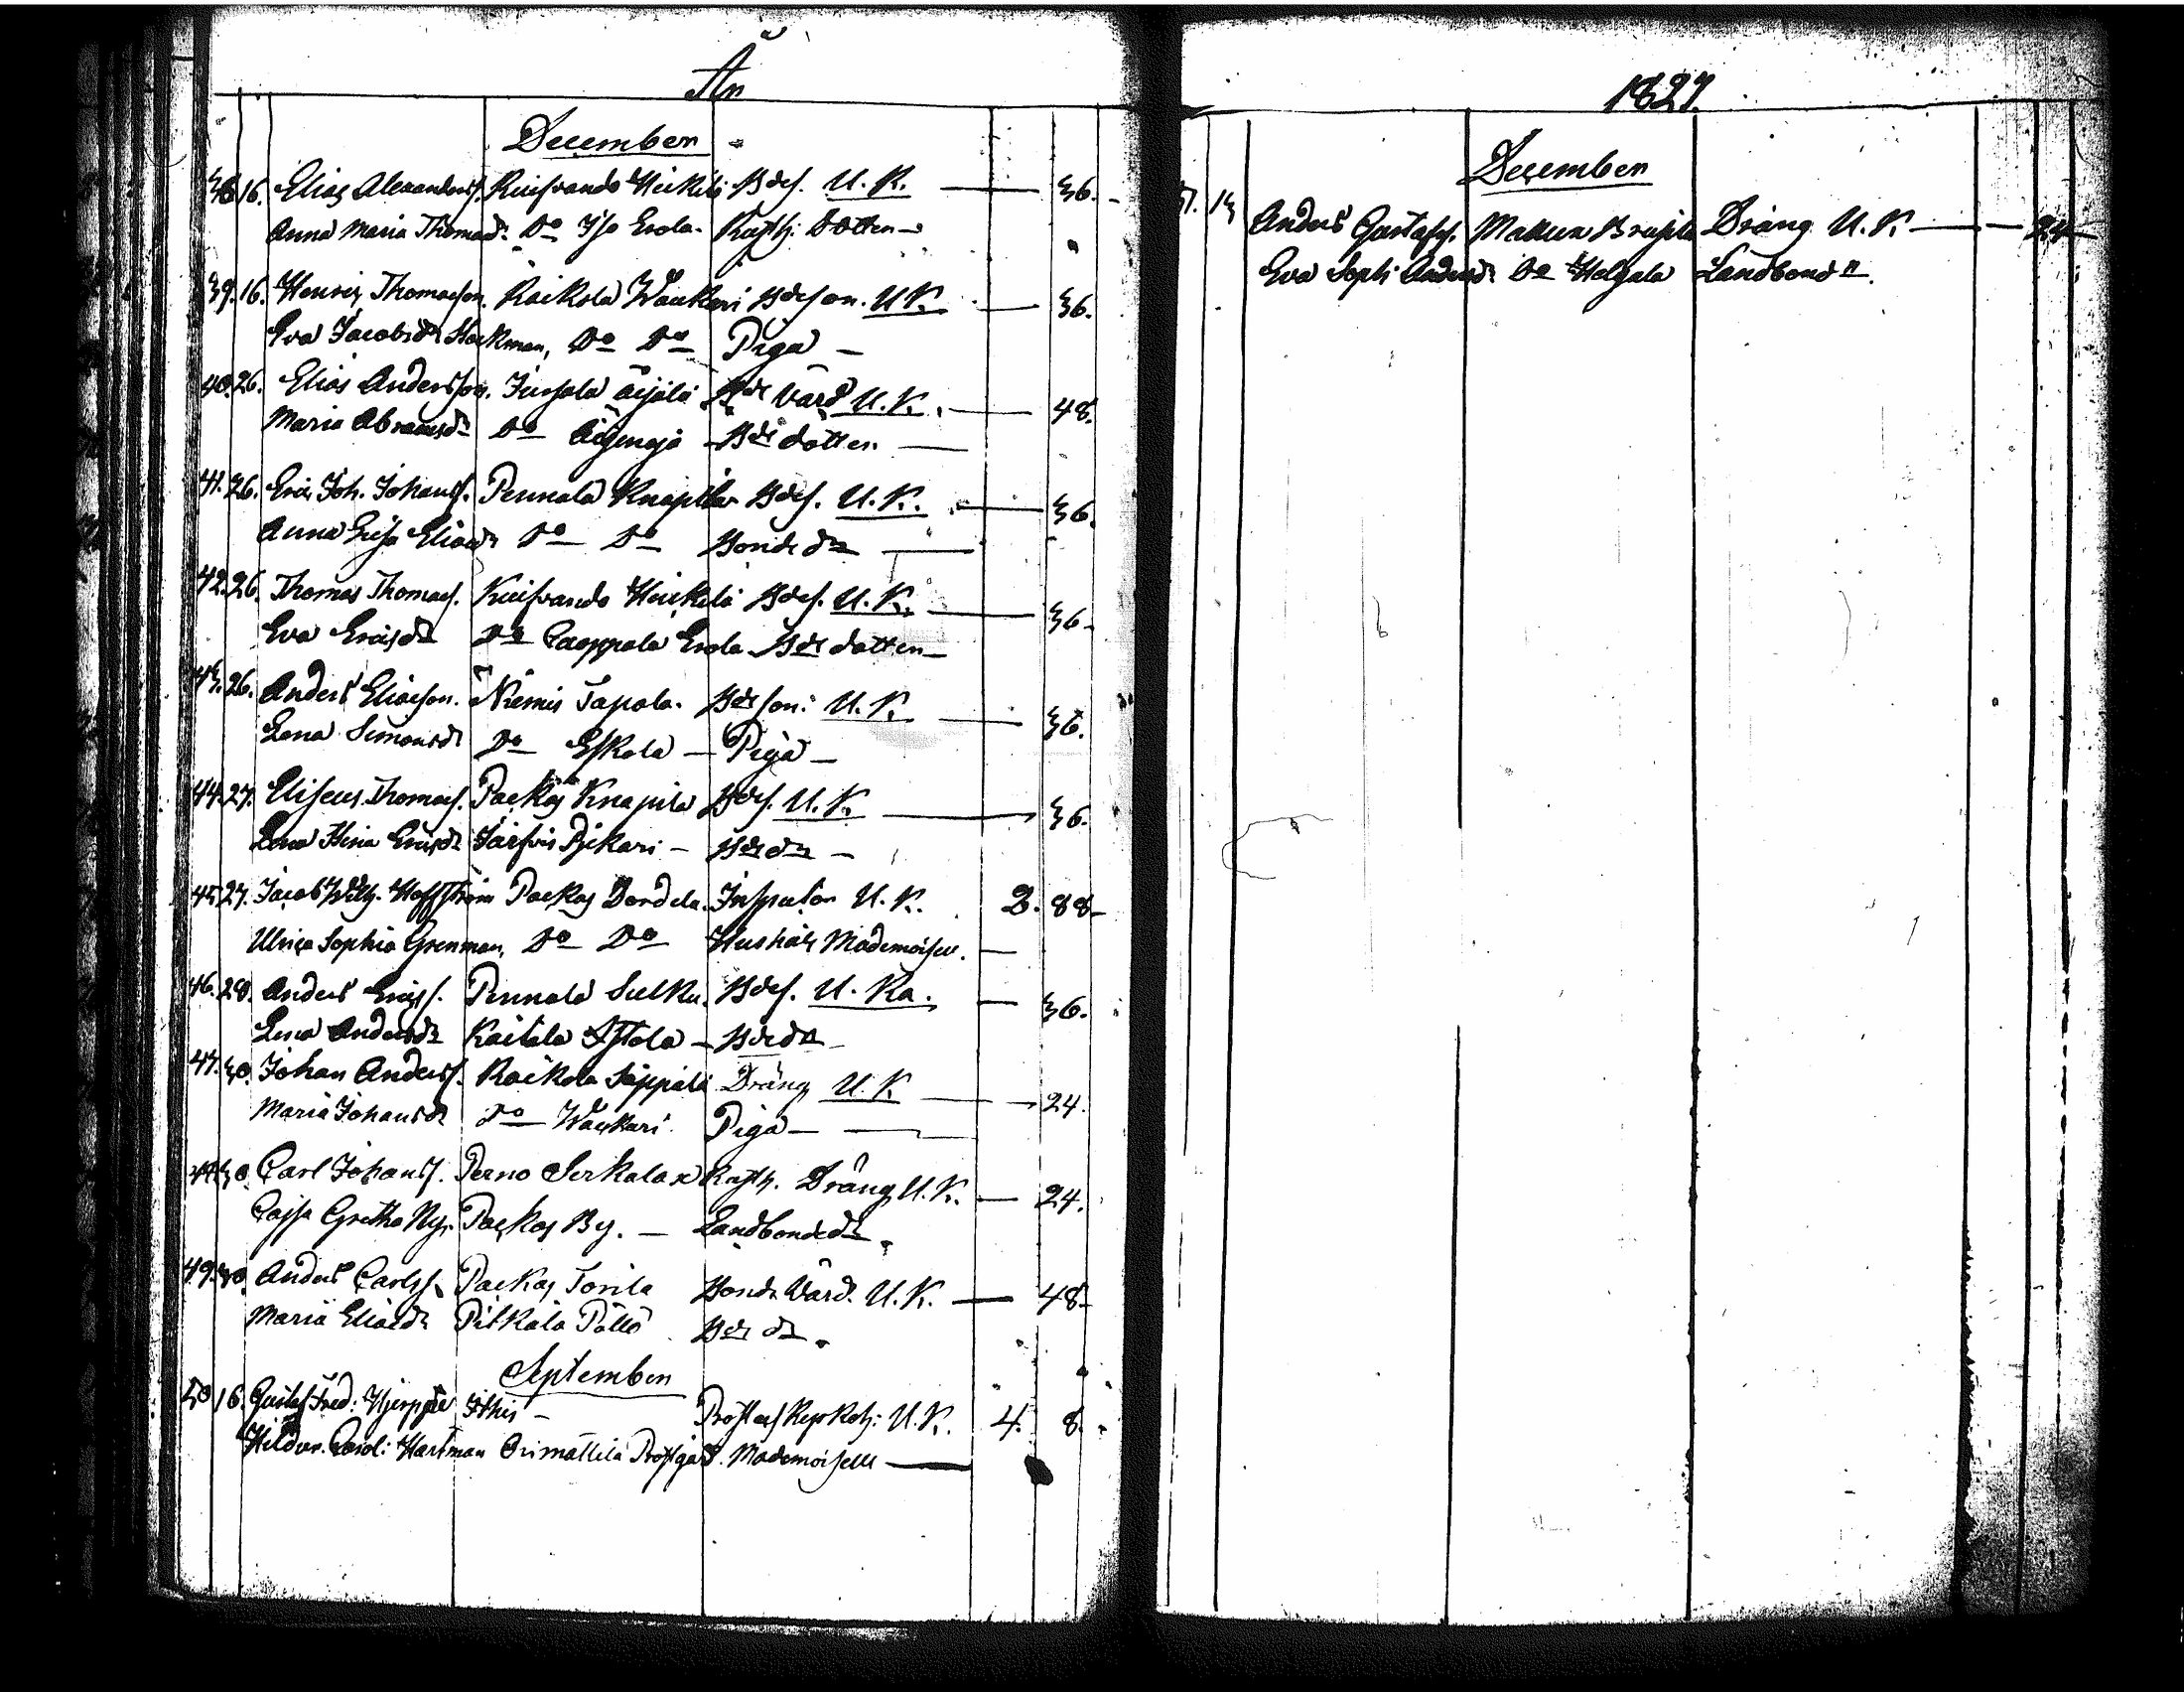 År
December
38 16. Elias Alexanders. Kuifvando Heikilä Bdes. U. K. — 36.
Anna Maria Thomasdr Do Iso Erola Rusth: Dotter —
39. 16. Henric Thomasson. Raikola Waukari Bdeson. U. K. — 36.
Eva Jacobsdr Stockman, Do Do Piga —
40. 26. Elias Andersson. Jursala Äijälä Bde Värd U. K. — 48.
Maria Abramsdr Do Bde dotter —
41. 26. Eric Joh. Johanss. Pennala Knapila Bdes. U. K. — 36.
Anna Lisa Eliaedr Do Do Bonde dr —
42. 26. Thomas Thomass. Kuifvando Heikilä Bdes. U. K. — 36.
Eva Ericsdr Do Erola Bde dotter —
43. 26. Anders Eliaeson. Niemis Tapola. Bde son: U. K. — 36.
Lena Simonsdr Do Eskola — Piga —
44. 27. Eliseus Thomass. Packas Knapila Bdes. U. K. — 36.
Lena Stina Ericsdr Järfvis Bde dr —
45. 27. Jacob Wilh. Hoffström Packas Bordela. Inspector U. K. 2. 88.
Ulrica Sophia Grenman, Do Do Hushåls Mademoisell. —
46. 28. Anders Ericss. Pennala Sulku. Bdes. U. Ka. — 36.
Lena Andersdr Kaitala — Bde dr —
47. 30. Johan Anderss. Raikola Säppälä Dräng U. K. — 24.
Maria Johansdr Do Waukari Piga —
48. 30. Carl Johanss. Perno Rusth. Dräng U. K. — 24.
Cajsa Gretha Packas By. — Landbondedr
49. 30. Anders Carlss. Packas Torila Bonde Värd. U. K. — 48.
Maria Eliaedr Pitkälä Pöllö Bde dr
September
50 16. Gustaf Fred: Hjerppe Ithis — U. K. 4. 8.
Carol: Hartman Orimattila Prostgård. Mademoiselle —
1827.
December
51. 13 Anders Gustafss. Dräng U. K. — 24
Eva Soph: Andersdr Do Landbonde dr.